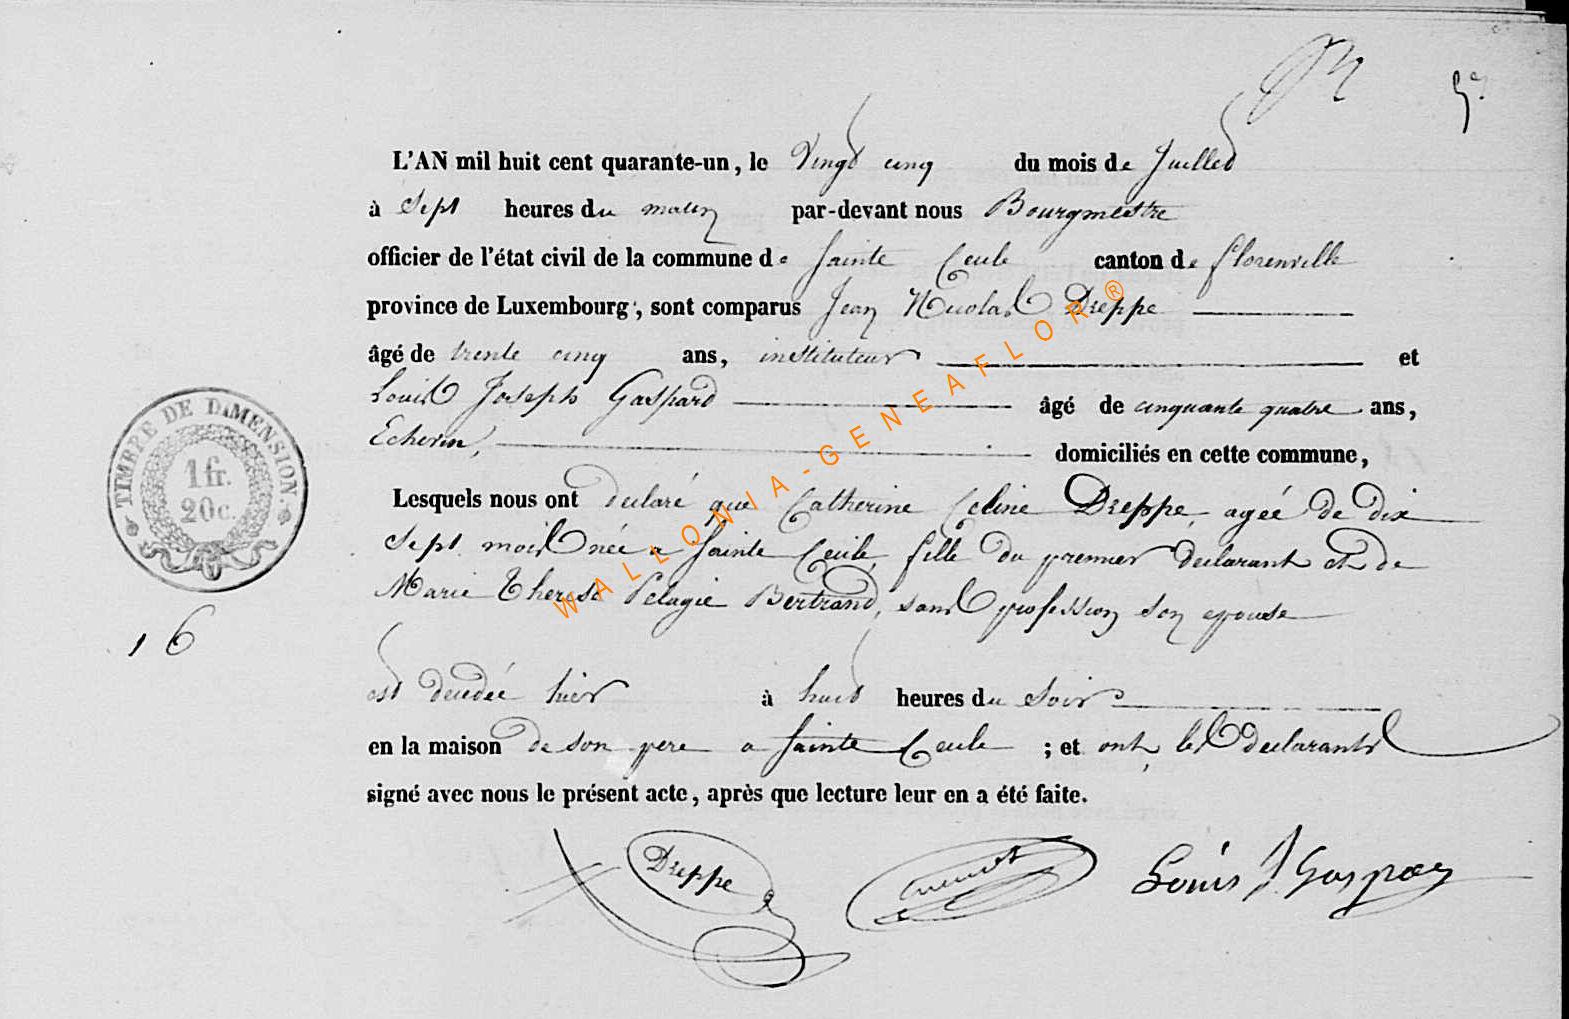 L'AN mil huit cent quarante-un, le Vingt cinq du mois de Juillet
à Sept heures du matin par-devant nous Bourgmestre
officier de l'état civil de la commune de Sainte Cecile canton de florenville
province de Luxembourg, sont comparus Jean Nicolas Dreppe
âgé de trente cinq ans, instituteur et
Louis Joseph Gaspard âgé de cinquante quatre ans,
Echevin, domiciliés en cette commune,
Lesquels nous ont declaré que Catherine Celine Dreppe, agée de dix
Sept mois née a Sainte Cecile, fille du premier declarant et de
Marie Therese Pelagie Bertrand, sans profession son epouse
est decedée hier à huit heures du Soir
en la maison de son pere a Sainte Cecile ; et ont les declarants
signé avec nous le présent acte, après que lecture leur en a été faite.
TIMBRE DE DIMENSION.
1 fr.
20 c.
16
Dreppe
Louis J Gaspard
WALLONIA-GENEAFLOR ®